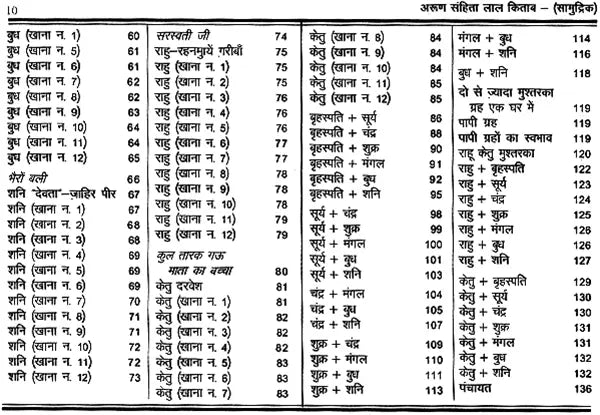 10
अरूण संहिता लाल किताब – (सामुद्रिक)
बुध (खाना न. 1) 60
बुध (खाना न. 5) 61
बुध (खाना न. 6) 61
बुध (खाना न. 7) 62
बुध (खाना न. 8) 62
बुध (खाना न. 9) 63
बुध (खाना न. 10) 64
बुध (खाना न. 11) 64
बुध (खाना न. 12) 65
भैरों बली 66
शनि "देवता"–ज़ाहिर पीर 67
शनि (खाना न. 1) 67
शनि (खाना न. 2) 68
शनि (खाना न. 3) 68
शनि (खाना न. 4) 69
शनि (खाना न. 5) 69
शनि (खाना न. 6) 69
शनि (खाना न. 7) 70
शनि (खाना न. 8) 71
शनि (खाना न. 9) 71
शनि (खाना न. 10) 72
शनि (खाना न. 11) 72
शनि (खाना न. 12) 73
सरस्वती जी 74
राहु–रहनमुायें ग़रीबाँ 75
राहु (खाना न. 1) 75
राहु (खाना न. 2) 75
राहु (खाना न. 3) 76
राहु (खाना न. 4) 76
राहु (खाना न. 5) 76
राहु (खाना न. 6) 77
राहु (खाना न. 7) 77
राहु (खाना न. 8) 78
राहु (खाना न. 9) 78
राहु (खाना न. 10) 78
राहु (खाना न. 11) 79
राहु (खाना न. 12) 79
कुल तारक गऊ
माता का बच्चा 80
केतु दरवेश 81
केतु (खाना न. 1) 81
केतु (खाना न. 2) 82
केतु (खाना न. 3) 82
केतु (खाना न. 4) 82
केतु (खाना न. 5) 83
केतु (खाना न. 6) 83
केतु (खाना न. 7) 83
केतु (खाना न. 8) 84
केतु (खाना न. 9) 84
केतु (खाना न. 10) 84
केतु (खाना न. 11) 85
केतु (खाना न. 12) 85
बृहस्पति + सूर्य 86
बृहस्पति + चंद्र 88
बृहस्पति + शुक्र 90
बृहस्पति + मंगल 91
बृहस्पति + बुध 92
बृहस्पति + शनि 95
सूर्य + चंद्र 98
सूर्य + शुक्र 99
सूर्य + मंगल 100
सूर्य + बुध 101
सूर्य + शनि 103
चंद्र + मंगल 104
चंद्र + बुध 105
चंद्र + शनि 107
शुक्र + चंद्र 109
शुक्र + मंगल 110
शुक्र + बुध 111
शुक्र + शनि 113
मंगल + बुध 114
मंगल + शनि 116
बुध + शनि 118
दो से ज़्यादा मुश्तरका
ग्रह एक घर में 119
पापी ग्रह 119
पापी ग्रहों का स्वभाव 119
राहू केतु मुश्तरका 120
राहु + बृहस्पति 122
राहु + सूर्य 123
राहु + चंद्र 124
राहु + शुक्र 125
राहु + मंगल 126
राहु + बुध 126
राहु + शनि 127
केतु + बृहस्पति 129
केतु + सूर्य 130
केतु + चंद्र 130
केतु + शुक्र 131
केतु + मंगल 131
केतु + बुध 132
केतु + शनि 132
पंचायत 136